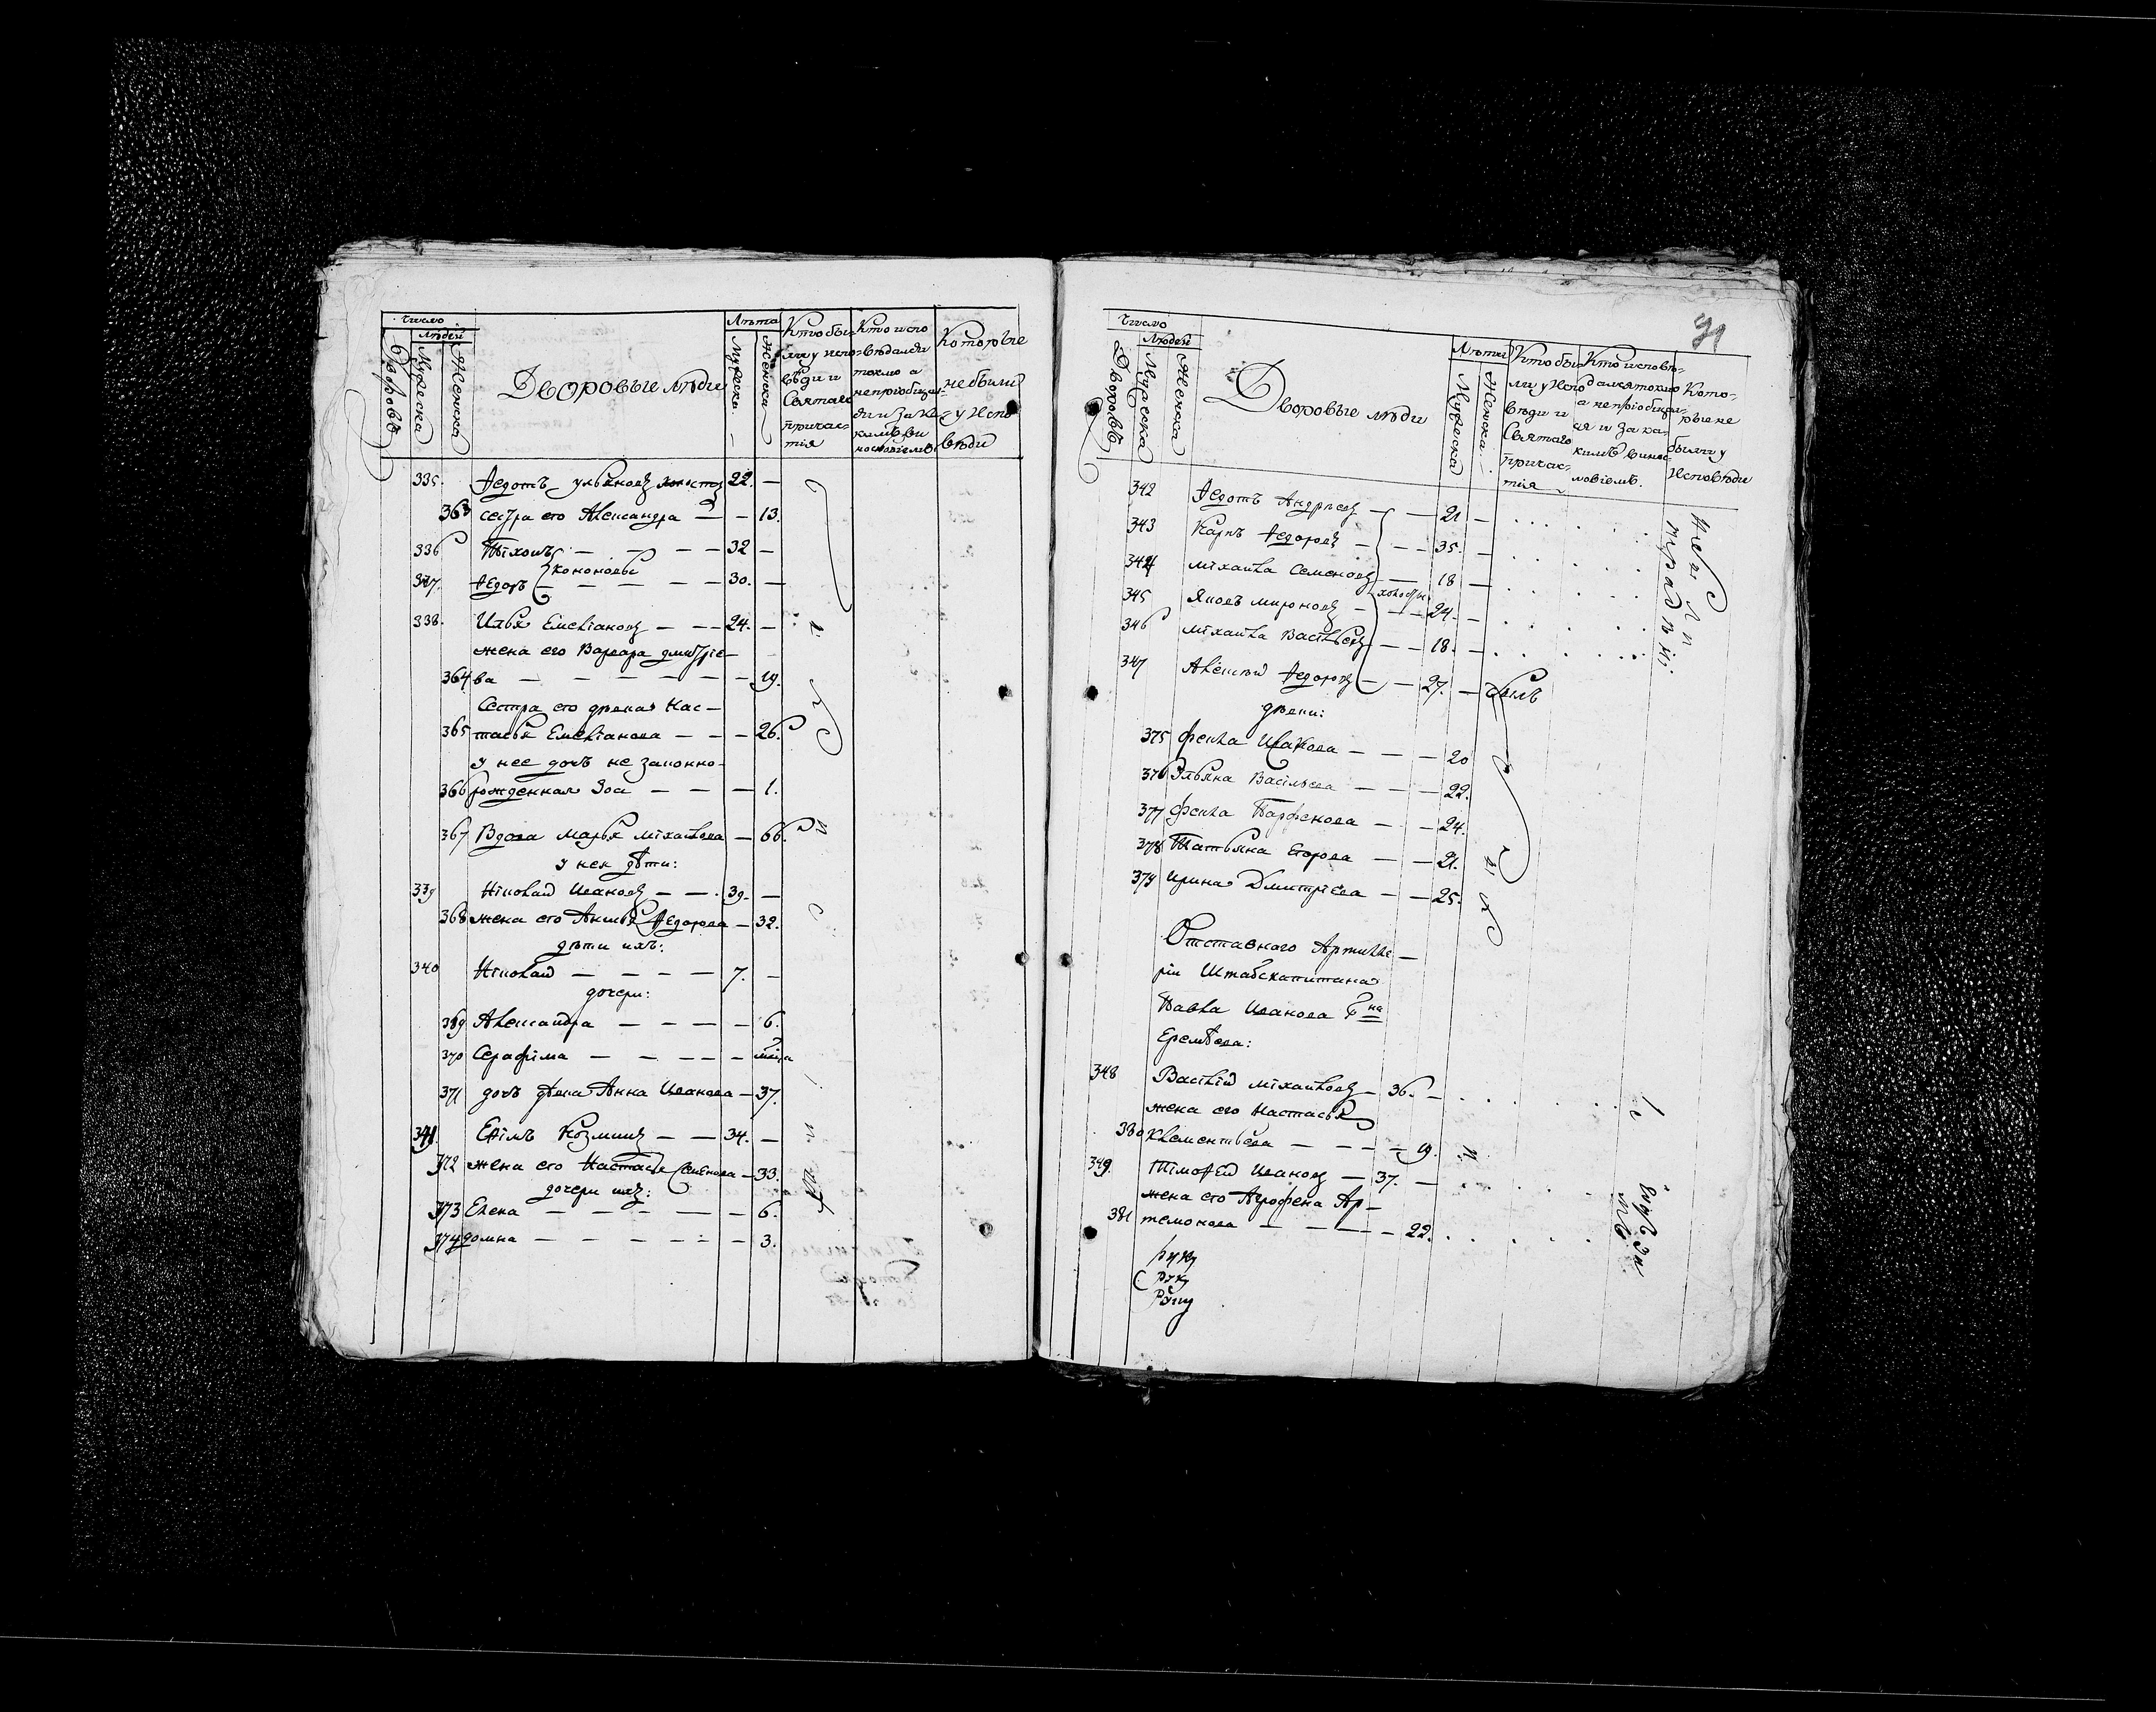 Число
Людей
Дворовъ
Мужеска
Женска
Дворовые люди
Лѣта
Мужеска
Женска
Кто бы-
ли у испо-
вѣди и
Святаго
причас-
тія
Кто испо
вѣдался
токмо а
непріобщил-
ся и за ка-
кимъ ви
нословіемъ
Которые
не были
у Испо
вѣди
335. Ѳедотъ ульяновъ холостъ 22. —
363 сестра его Александра — — 13.
336 Тихонъ — — — — 32 —
Кононовы
337. Ѳедоръ — — — — 30. —
338. Илья Емеліановъ — — — 24. —
жена его Варвара дмитріе—
364 ва — — — — — — 19.
Сестра его дѣвка Нас—
365 тасья Емеліанова — — — 26.
у нее дочь не законно-
366 рожденная Зоа — — — 1.
367 Вдова марья міхаилова — 66.
у нея дѣти:
339 Николай Ивановъ — — . 39. —
368 жена его Анисья Ѳедорова — 32.
дѣти ихъ:
340 Николай — — — — 7. —
дочери:
369 Александра — — — — 6.
370 Серафима — — — — —
371 дочь дѣвка Анна Иванова — 37.
341. Еѳимъ Козминъ — — 34. —
372 жена его Настасья Семенова — 33.
дочери ихъ:
373 Елена — — — — — 6.
374 домна — — — — — 3.
91
Число
Людей
Дворовъ
Мужеска
Женска
Дворовые люди
Лѣта
Мужеска
Женска
Кто бы
ли у Испо
вѣди и
Святаго
причас-
тія
Кто исповѣ-
дался токмо
а непріобщил-
ся и за ка-
кимъ винос-
ловіемъ.
Кото-
рые не
были у
Исповѣди
342 Ѳедотъ Андреевъ — — 21 —
343 Карпъ Ѳедоровъ — — — 35. —
344 міхаила Семеновъ — 18 —
холосты
345 Яковъ мироновъ — — — 24. —
346 міхаила Васильевъ — — 18. —
347 Алексѣй Ѳедоровъ — — 27. — былъ
дѣвки:
375 Фекла Иванова — — — 20
376 Ульяна Васильева — — — 22.
377 Фекла Парфенова — — 24.
378 Татьяна Егорова — — 21.
379 Ирина Дмитріева — — 25.
Отставного Артилле—
ріи Штабскапитана
Павла Иванова Г:на
Еремѣева:
348 Василій міхаиловъ — 36. —
жена его Настасья
380 Клементьева — — — — 19.
349. Тімоѳей Ивановъ — 37. —
жена его Агрофена Ар—
381 темонова — — — — 22.